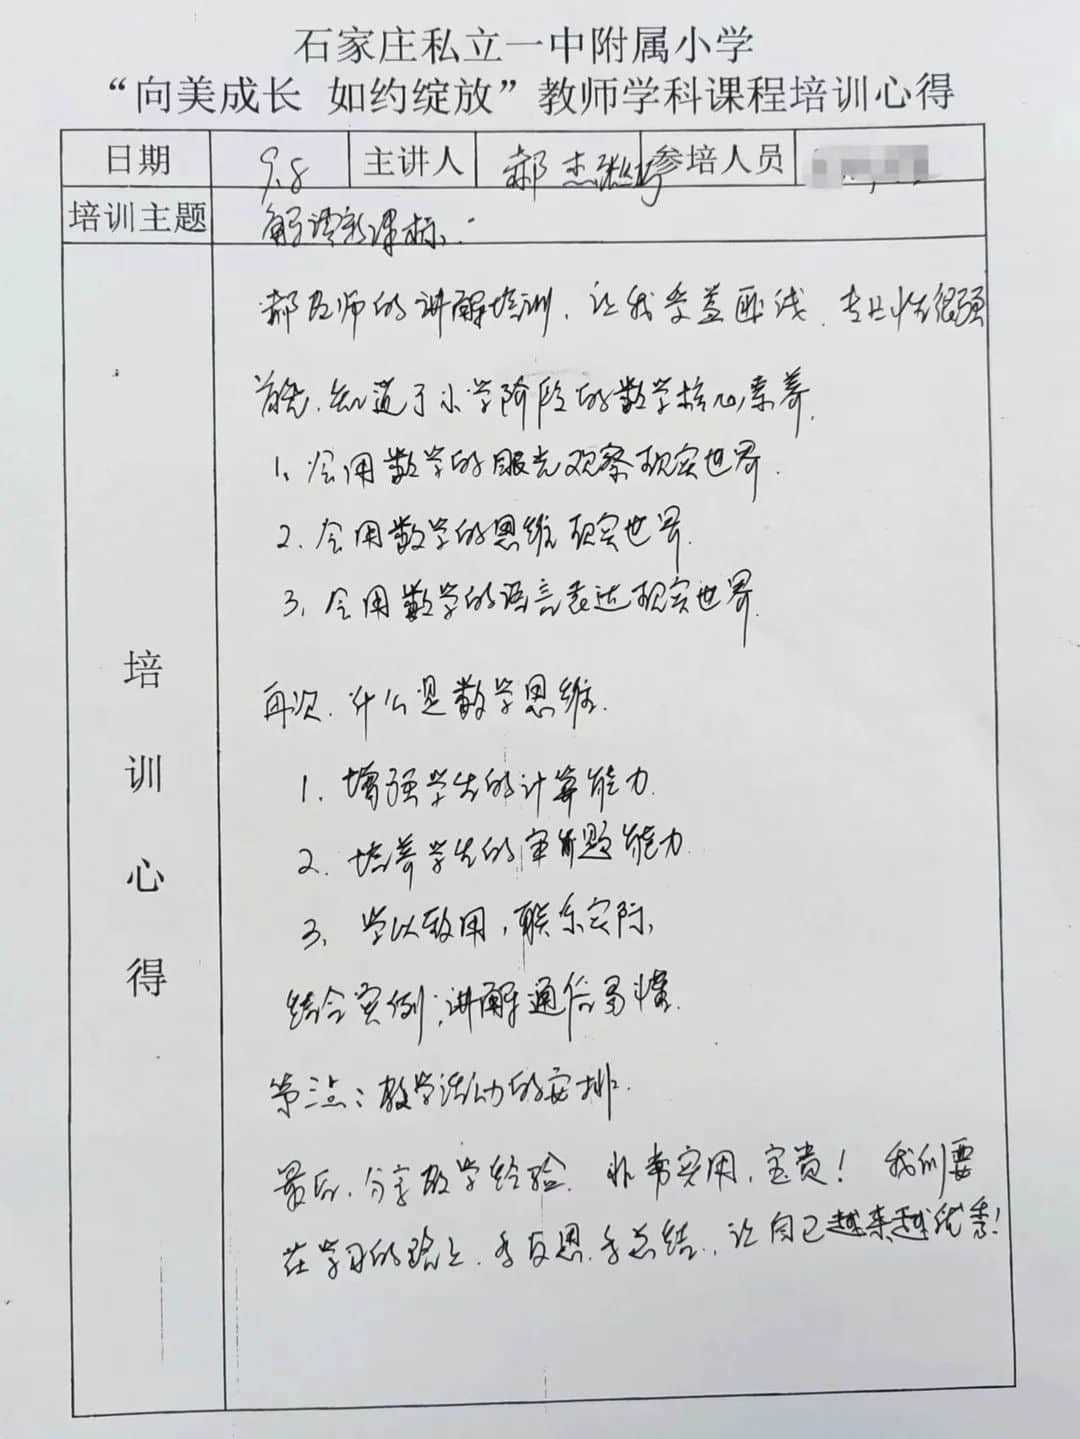 石家庄私立一中附属小学
“向美成长 如约绽放”教师学科课程培训心得
日期 9.8 主讲人 郝杰 参培人员
培训主题 解读新课标.
培训心得
郝老师的讲解培训,让我受益匪浅.专业性很强
首先.知道了小学阶段的数学核心素养.
1、会用数学的眼光观察现实世界.
2.会用数学的思维现实世界.
3、会用数学的语言表达现实世界.
再次.什么是数学思维.
1.增强学生的计算能力.
2.培养学生的审题能力.
3、学以致用,联系实际,
结合实例,讲解通俗易懂.
第三点:教学活动的安排.
最后,分享教学经验.非常实用,宝贵!我们要
在学习的路上.多反思.多总结.,让自己越来越优秀!